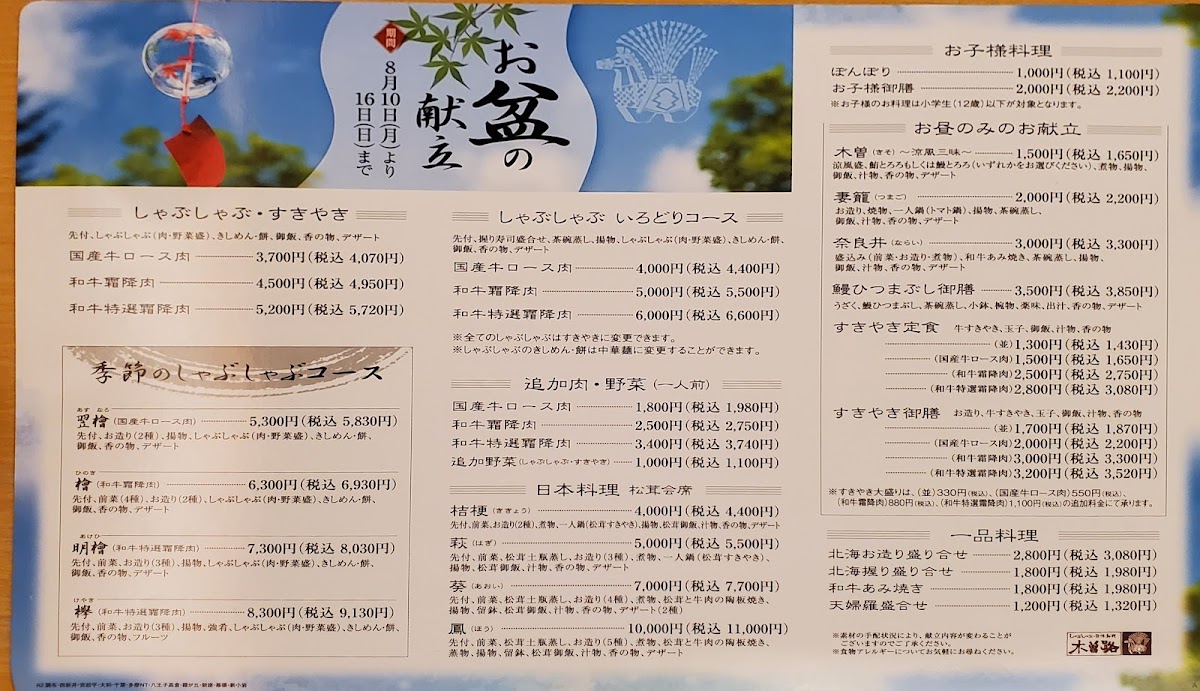 お盆の
献立
期間
8月10日(月)より
16日(日)まで
しゃぶしゃぶ・すきやき
先付、しゃぶしゃぶ(肉・野菜盛)、きしめん・餅、御飯、香の物、デザート
国産牛ロース肉 3,700円(税込 4,070円)
和牛霜降肉 4,500円(税込 4,950円)
和牛特選霜降肉 5,200円(税込 5,720円)
季節のしゃぶしゃぶコース
あすなろ
翌檜(国産牛ロース肉) 5,300円(税込 5,830円)
先付、お造り(2種)、揚物、しゃぶしゃぶ(肉・野菜盛)、きしめん・餅、
御飯、香の物、デザート
ひのき
檜(和牛霜降肉) 6,300円(税込 6,930円)
先付、前菜(4種)、お造り(2種)、しゃぶしゃぶ(肉・野菜盛)、きしめん・餅、
御飯、香の物、デザート
あけひ
明檜(和牛特選霜降肉) 7,300円(税込 8,030円)
先付、前菜、お造り(3種)、揚物、しゃぶしゃぶ(肉・野菜盛)、きしめん・餅、
御飯、香の物、デザート
けやき
欅(和牛特選霜降肉) 8,300円(税込 9,130円)
先付、前菜、お造り(3種)、揚物、強肴、しゃぶしゃぶ(肉・野菜盛)、きしめん・餅、
御飯、香の物、フルーツ
しゃぶしゃぶ いろどりコース
先付、握り寿司盛合せ、茶碗蒸し、揚物、しゃぶしゃぶ(肉・野菜盛)、きしめん・餅、
御飯、香の物、デザート
国産牛ロース肉 4,000円(税込 4,400円)
和牛霜降肉 5,000円(税込 5,500円)
和牛特選霜降肉 6,000円(税込 6,600円)
※全てのしゃぶしゃぶはすきやきに変更できます。
※しゃぶしゃぶのきしめん・餅は中華麺に変更することができます。
追加肉・野菜(一人前)
国産牛ロース肉 1,800円(税込 1,980円)
和牛霜降肉 2,500円(税込 2,750円)
和牛特選霜降肉 3,400円(税込 3,740円)
追加野菜(しゃぶしゃぶ・すきやき) 1,000円(税込 1,100円)
日本料理 松茸会席
桔梗(ききょう) 4,000円(税込 4,400円)
先付、前菜、お造り(2種)、煮物、一人鍋(松茸すきやき)、揚物、松茸御飯、汁物、香の物、デザート
萩(はぎ) 5,000円(税込 5,500円)
先付、前菜、松茸土瓶蒸し、お造り(3種)、煮物、一人鍋(松茸すきやき)、
揚物、松茸御飯、汁物、香の物、デザート
葵(あおい) 7,000円(税込 7,700円)
先付、前菜、松茸土瓶蒸し、お造り(4種)、煮物、松茸と牛肉の陶板焼き、
揚物、留鉢、松茸御飯、汁物、香の物、デザート(2種)
鳳(ほう) 10,000円(税込 11,000円)
先付、前菜、松茸土瓶蒸し、お造り(5種)、煮物、松茸と牛肉の陶板焼き、
蒸物、揚物、留鉢、松茸御飯、汁物、香の物、デザート
お子様料理
ぼんぼり 1,000円(税込 1,100円)
お子様御膳 2,000円(税込 2,200円)
※お子様のお料理は小学生(12歳)以下が対象となります。
お昼のみのお献立
木曽(きそ)～涼風三昧～ 1,500円(税込 1,650円)
涼風盛、鮪とろろもしくは鰻とろろ(いずれかをお選びください)、煮物、揚物、
御飯、汁物、香の物、デザート
妻籠(つまご) 2,000円(税込 2,200円)
お造り、焼物、一人鍋(トマト鍋)、揚物、茶碗蒸し、
御飯、汁物、香の物、デザート
奈良井(ならい) 3,000円(税込 3,300円)
盛込み(前菜・お造り・煮物)、和牛あみ焼き、茶碗蒸し、揚物、
御飯、汁物、香の物、デザート
鰻ひつまぶし御膳 3,500円(税込 3,850円)
うざく、鰻ひつまぶし、茶碗蒸し、小鉢、椀物、薬味、出汁、香の物、デザート
すきやき定食 牛すきやき、玉子、御飯、汁物、香の物
(並)1,300円(税込 1,430円)
(国産牛ロース肉)1,500円(税込 1,650円)
(和牛霜降肉)2,500円(税込 2,750円)
(和牛特選霜降肉)2,800円(税込 3,080円)
すきやき御膳 お造り、牛すきやき、玉子、御飯、汁物、香の物
(並)1,700円(税込 1,870円)
(国産牛ロース肉)2,000円(税込 2,200円)
(和牛霜降肉)3,000円(税込 3,300円)
(和牛特選霜降肉)3,200円(税込 3,520円)
※すきやき大盛りは、(並)330円(税込)、(国産牛ロース肉)550円(税込)、
(和牛霜降肉)880円(税込)、(和牛特選霜降肉)1,100円(税込)の追加料金にて承ります。
一品料理
北海お造り盛り合せ 2,800円(税込 3,080円)
北海握り盛り合せ 1,800円(税込 1,980円)
和牛あみ焼き 1,800円(税込 1,980円)
天婦羅盛合せ 1,200円(税込 1,320円)
※素材の手配状況により、献立内容が変わることが
ございますのでご了承ください。
※食物アレルギーについてお気軽にお尋ねください。
しゃぶしゃぶ・日本料理
木曽路